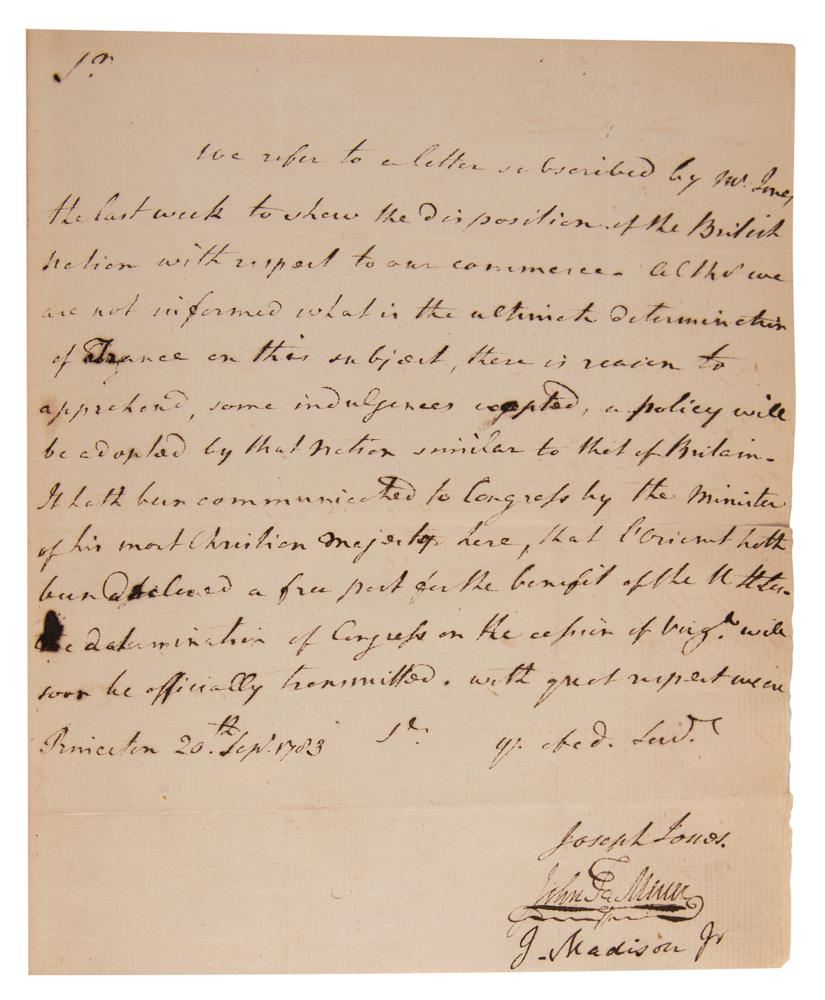 Sr
We refer to a letter subscribed by Mr. Jones
the last week to shew the disposition of the British
Nation with respect to our commerce. Altho' we
are not informed what is the ultimate determination
of France on this subject, there is reason to
apprehend, some indulgences excepted, a policy will
be adopted by that Nation similar to that of Britain-
It hath been communicated to Congress by the Minister
of his most Christian Majesty here, that l'Orient hath
been declared a free port for the benefit of the U States-
The determination of Congress on the cession of Virga. will
soon be officially transmitted. with great respect we are
Princeton 20th. Sepr. 1783 Sr. yr. obed. Servts
Joseph Jones.
John F. Mercer
J. Madison Jr